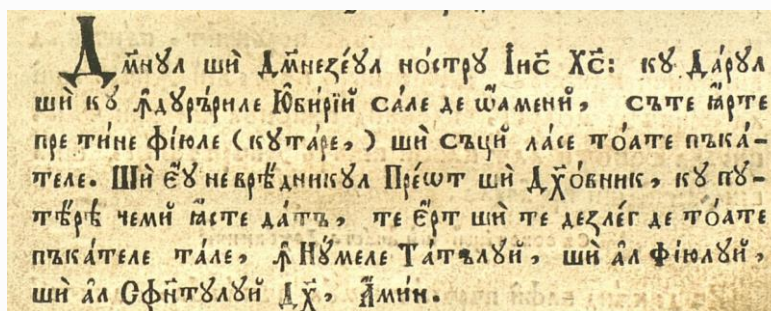 Дм҃нꙋл шѝ Дм҃незе́ꙋл но́стрꙋ І҆ис҃ Хс҃: кꙋ Да́рꙋл
шѝ кꙋ ꙟдꙋръ́риле Ю҆би́рїй са́ле де ѡ҆́аменй, съте ꙗ҆́рте
пре ти́не фі́юле (кꙋта́ре,) шѝ съцй ла́се то́ате пъка́-
теле. Шѝ є҆́ꙋ невре́дникꙋл Пре́ѡт шѝ Дх҃о́вник, кꙋ пꙋ-
тѣ́рѣ чемй ꙗ҆́сте да́тъ, те є҆́рт шѝ те дезле́г де то́ате
пъка́теле та́ле, ꙟ Нꙋ́меле Та́тълꙋй, шѝ а҆́л Фі́юлꙋй,
шѝ а҆́л Сфн҃тꙋлꙋй Дх҃, А҆ми́н.